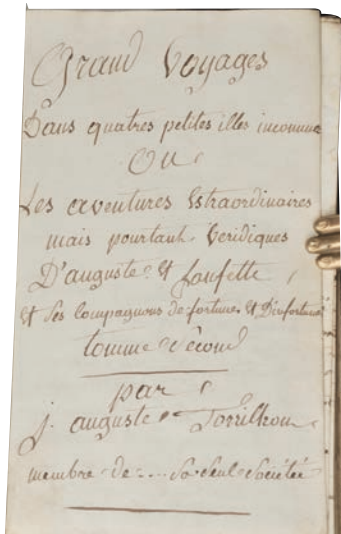 Grand Voyages
Dans quatres petites illes inconnue
Ou
Les aventures Extraordinaires
mais pourtant Veridiques
D'auguste Et fanfette
Et Ses Compagnons de fortune Et Dinfortune
tomme Sècond
par
j. auguste Torrilhon
membre de .... Sa Seul Sociétée